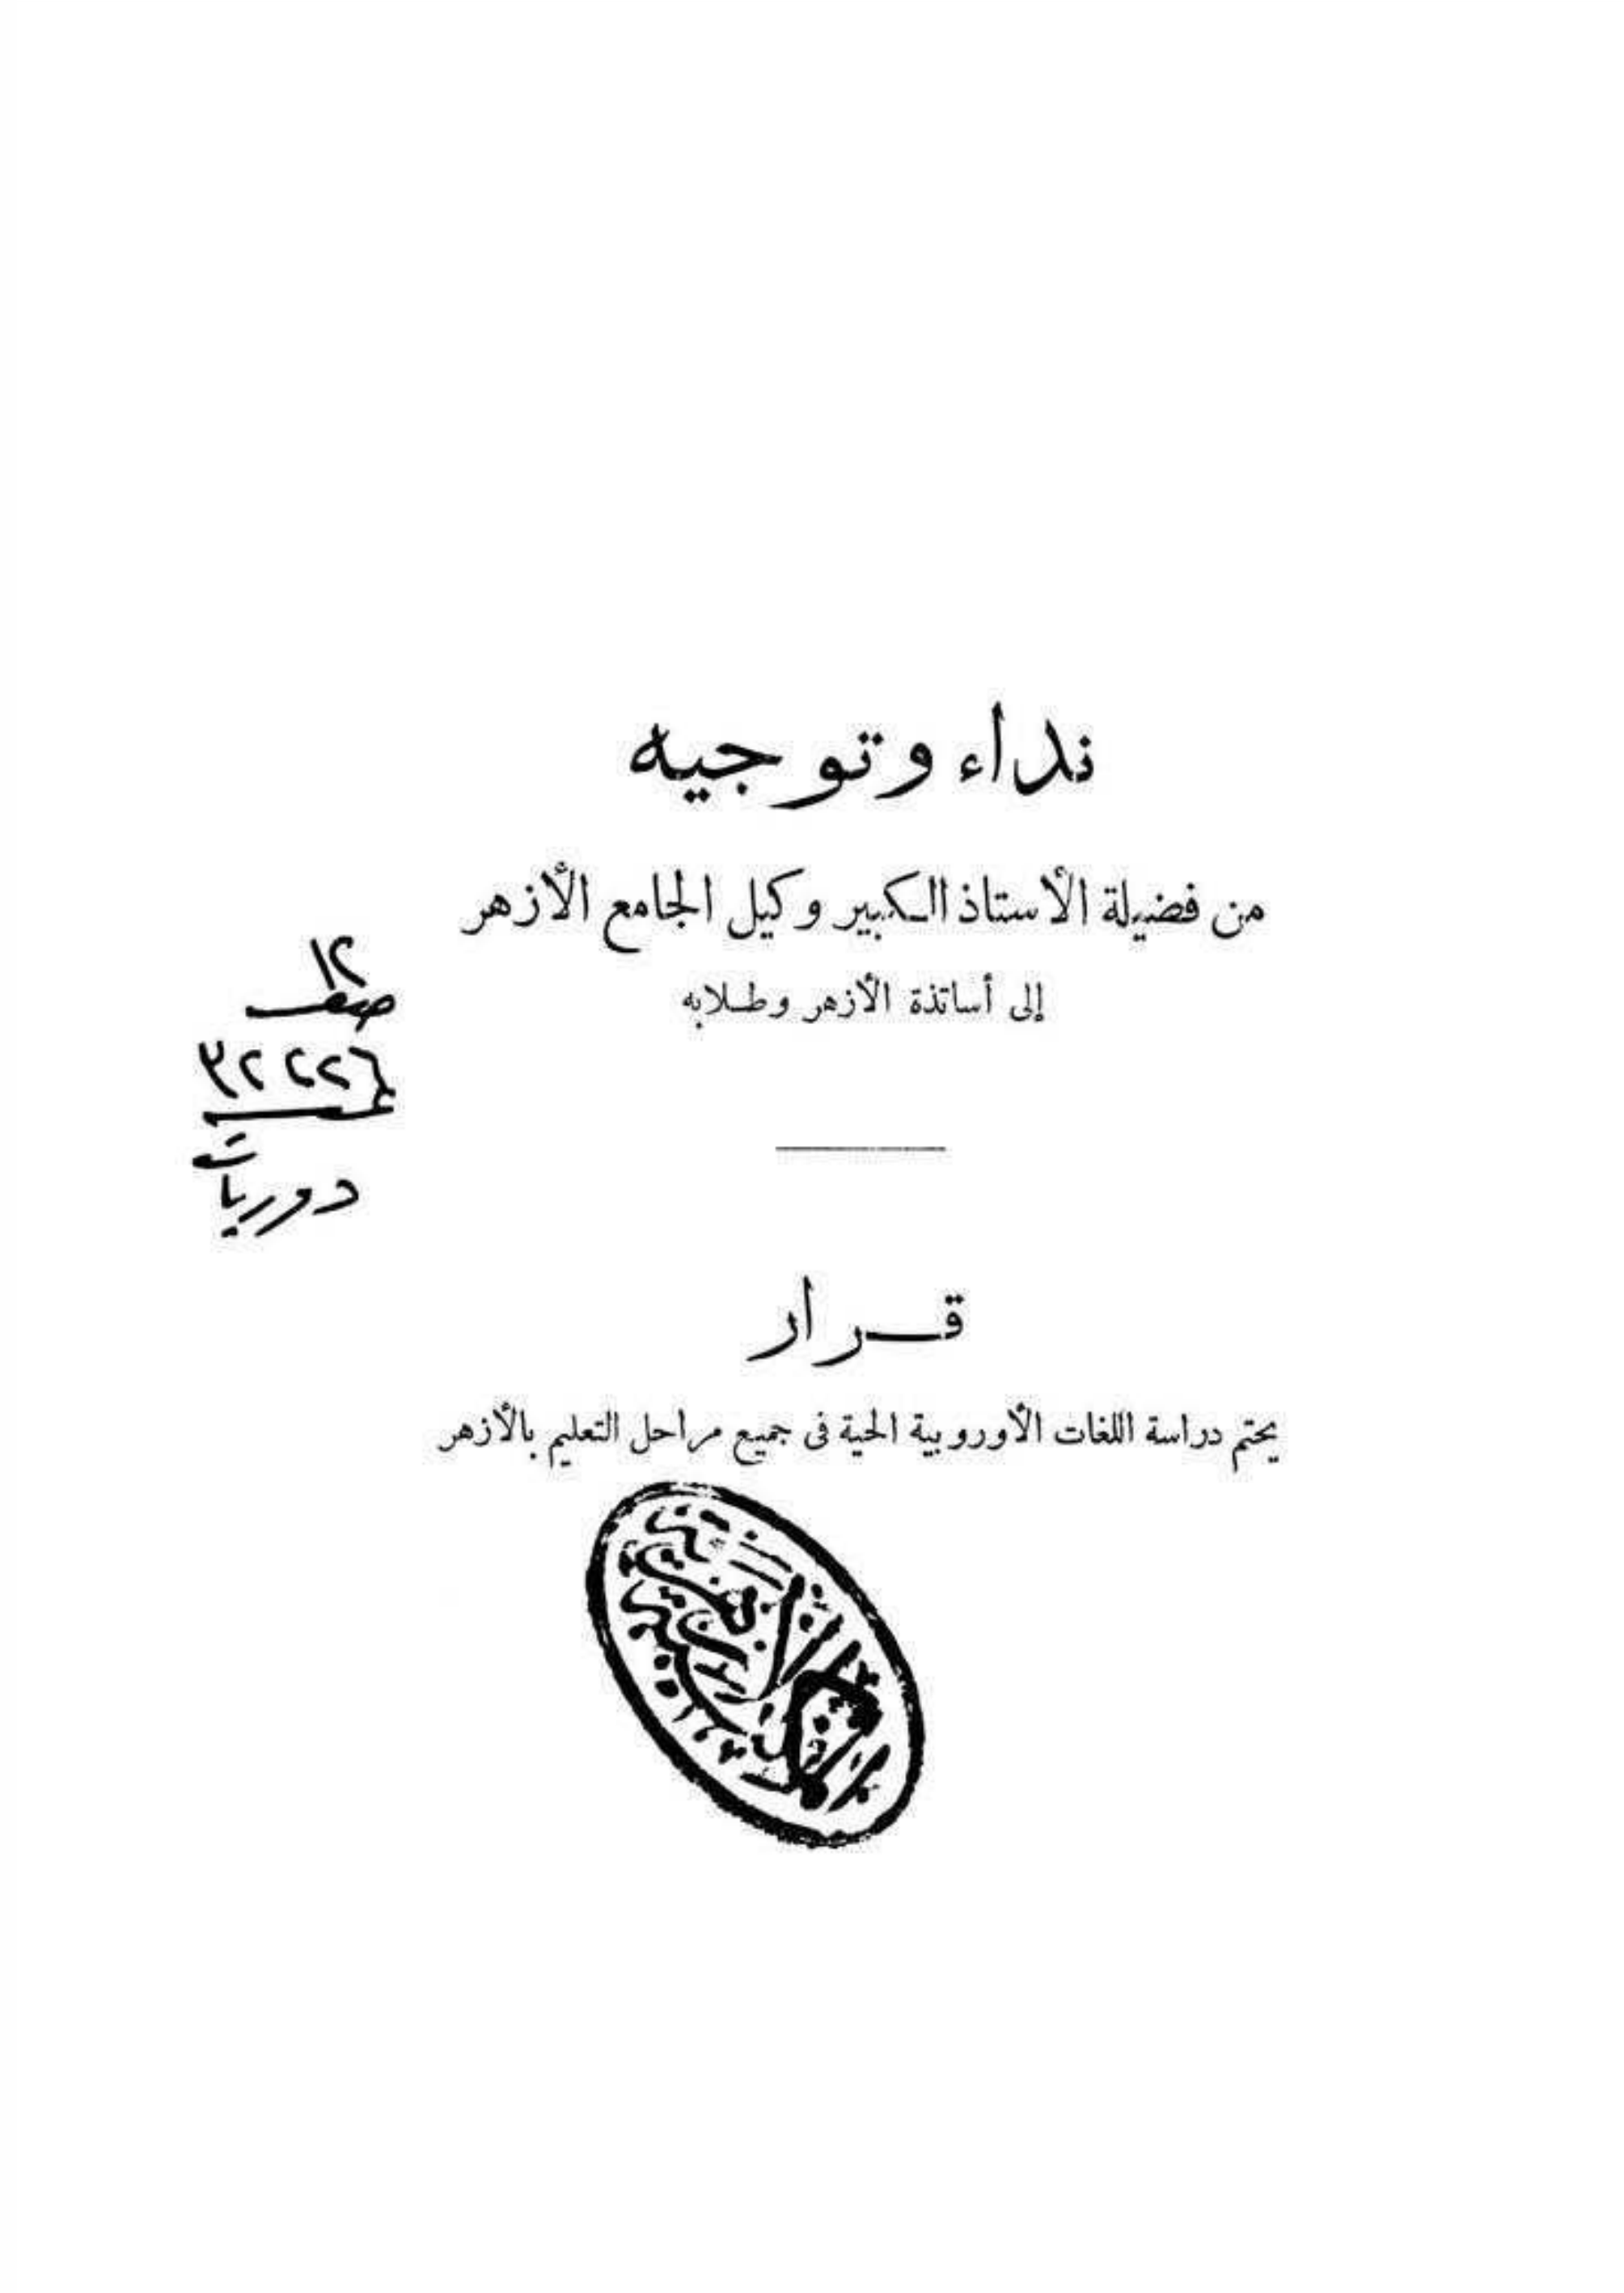 نداء وتوجيه
من فضيلة الأستاذ الكبير وكيل الجامع الأزهر
إلى أساتذة الأزهر وطلابه
١٢
صف
٣٢٢٢٤
دوريات
قرار
يحتم دراسة اللغات الأوروبية الحية فى جميع مراحل التعليم بالأزهر